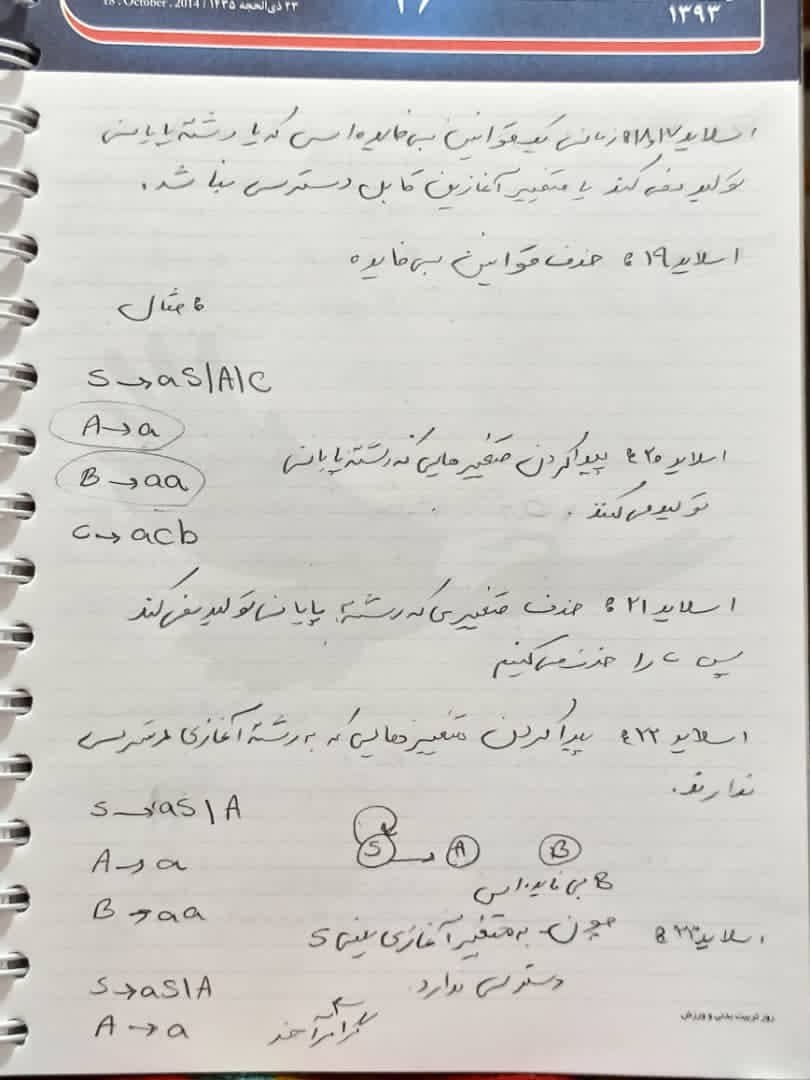 18 . October . 2014 / ۲۳ ذی‌الحجه ۱۴۳۵
۱۳۹۳
اسلاید ۱۷ و ۱۸: زمانی یک قوانین بی‌فایده است که یا رشته پایانی
تولید نمی‌کند یا متغییر آغازین قابل دسترسی نباشد.
اسلاید ۱۹: حذف قوانین بی‌فایده
مثال:
S → aS|A|C
A → a
B → aa
C → acb
اسلاید ۲۰: پیدا کردن متغییرهایی که رشته پایانی
تولید می‌کنند.
اسلاید ۲۱: حذف متغییری که رشته پایانی تولید نمی‌کند
پس C را حذف می‌کنیم
اسلاید ۲۲: پیدا کردن متغییرهایی که به رشته آغازی دسترسی
ندارند.
S → aS|A
A → a
B → aa
S → A B
B بی‌فایده است
اسلاید ۲۳: چون به متغییر آغازی یعنی S
دسترسی ندارد.
S → aS|A
A → a
گرامر آخر
روز تربیت بدنی و ورزش